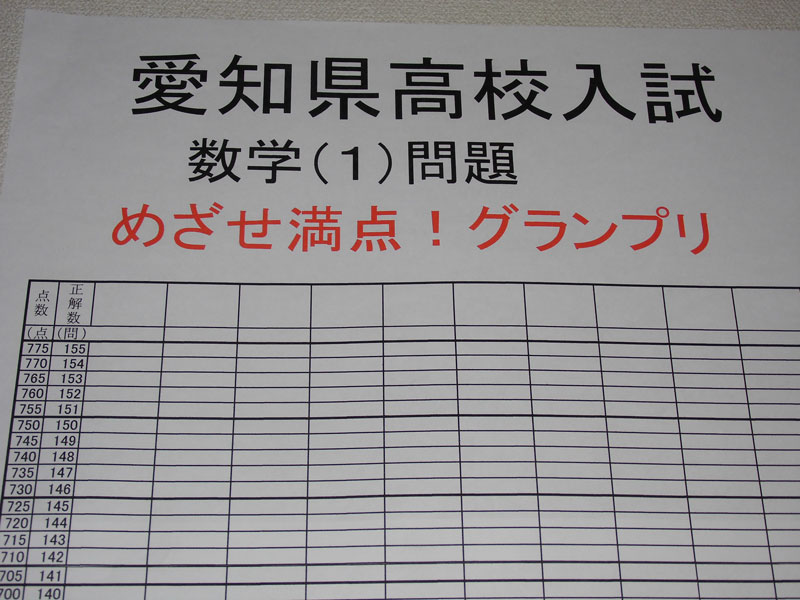 愛知県高校入試
数学(1)問題
めざせ満点!グランプリ
点数 正解数
(点 (問)
775 155
770 154
765 153
760 152
755 151
750 150
745 149
740 148
735 147
730 146
725 145
720 144
715 143
710 142
705 141
700 140